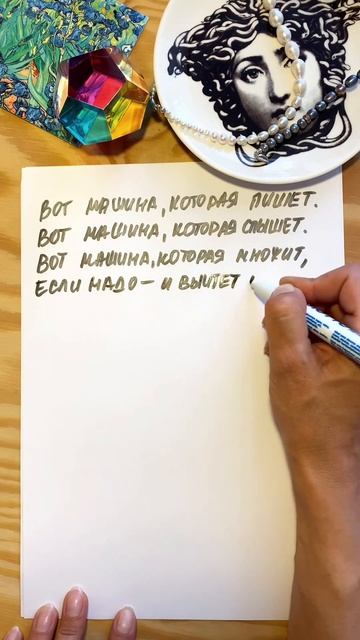 ВОТ МАШИНА, КОТОРАЯ ПИШЕТ.
ВОТ МАШИНА, КОТОРАЯ СЛЫШЕТ.
ВОТ МАШИНА, КОТОРАЯ МНОЖИТ,
ЕСЛИ НАДО – И ВЫЧТЕТ